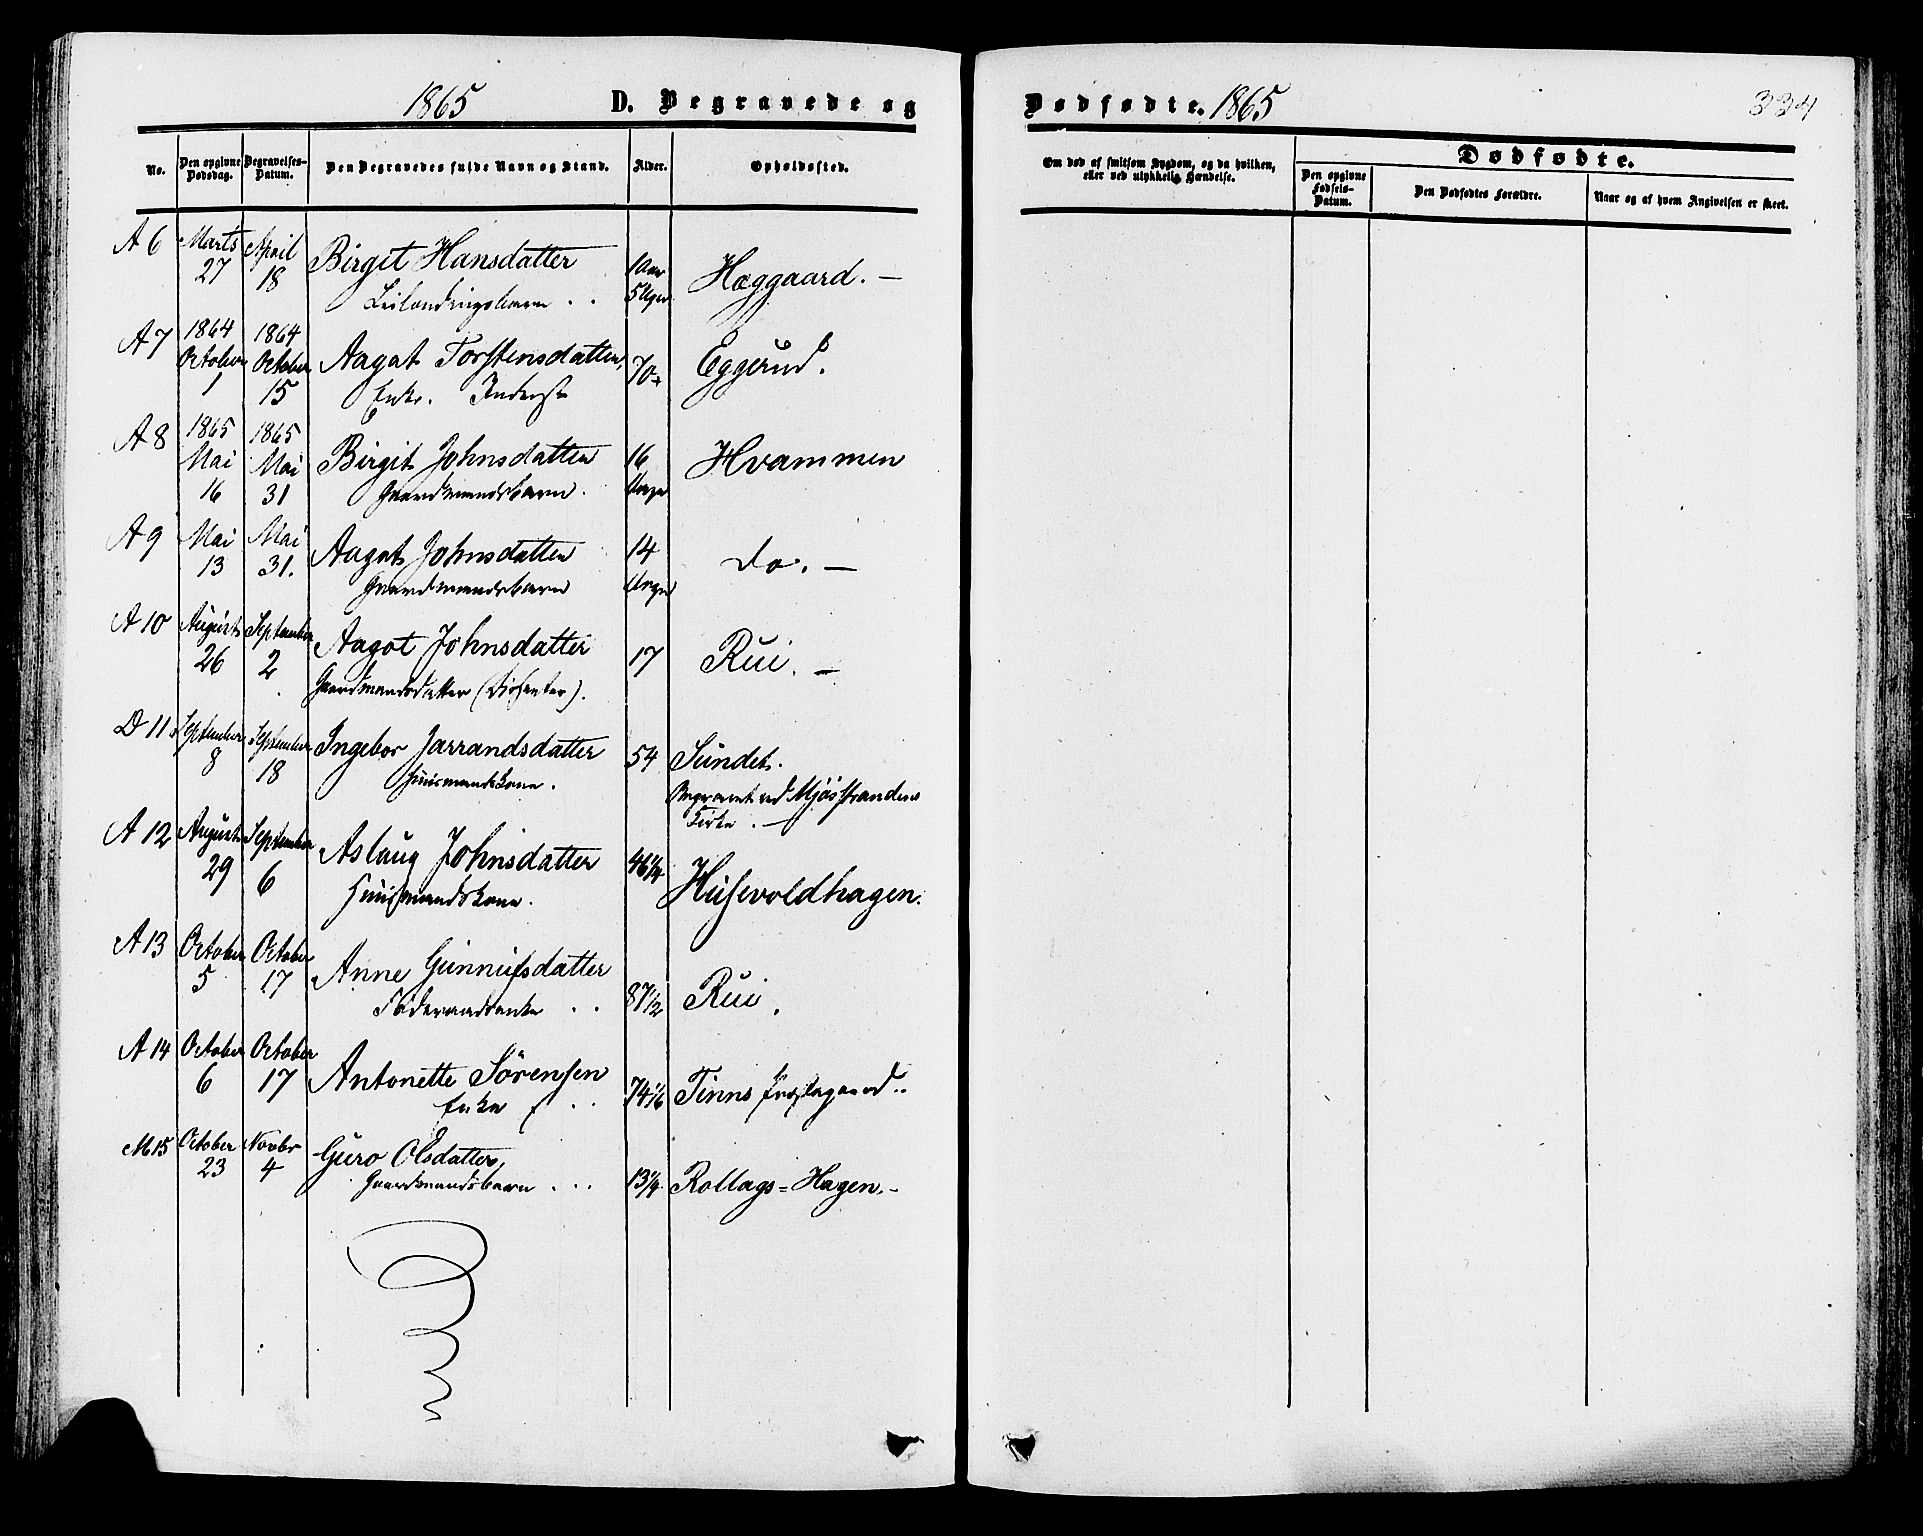 1865 D. Begravede og
No. Den opgivne Dødsdag. Begravelses-Datum. Den Begravedes fulde Navn og Stand. Alder. Opholdssted.
A 6 Marts 27 April 18 Birgit Hansdatter 1 Aar 5 Uger Hæggaard. —
Leilændingsbarn
A 7 1864 October 1 1864 October 15 Aagot Torstensdatter, 70 Eggerud.
Enke. Inderst
A 8 1865 Mai 16 1865 Mai 31 Birgit Johnsdatter 16 Uger Hvammen
Gaardmandsbarn.
A 9 Mai 13 Mai 31. Aagot Johnsdatter 14 Uger do. —
Gaardmandsbarn
A 10 August 26 September 2 Aagot Johnsdatter 17 Rui. —
Gaardmandsdatter (Dissenter).
D 11 September 8 September 18 Ingebor Jarrandsdatter 54 Sundet.
Huusmandskone. Begravet ved Mjøsstrandens
Kirke. —
A 12 August 29 September 6 Aslaug Johnsdatter 46 1/4 Husevoldhagen.
Huusmandskone.
A 13 October 5 October 17 Anne Gunnufsdatter 87 1/2 Rui.
Føderaadsenke
A 14 October 6 October 17 Antonette Sørensen 74 1/6 Tinns Præstegaard.
Enke
M 15 October 23 Novbr 4 Guro Olsdatter, 13 1/4 Rollags=Hagen. —
Gaardmandsbarn
Dødfødte. 1865 334
Om død af smitsom Sygdom, og da hvilken, eller ved ulykkelig Hændelse. Dødfødte.
Den opgivne Fødsels-Datum. Den Dødfødtes Forældre. Naar og af hvem Angivelsen er skeet.